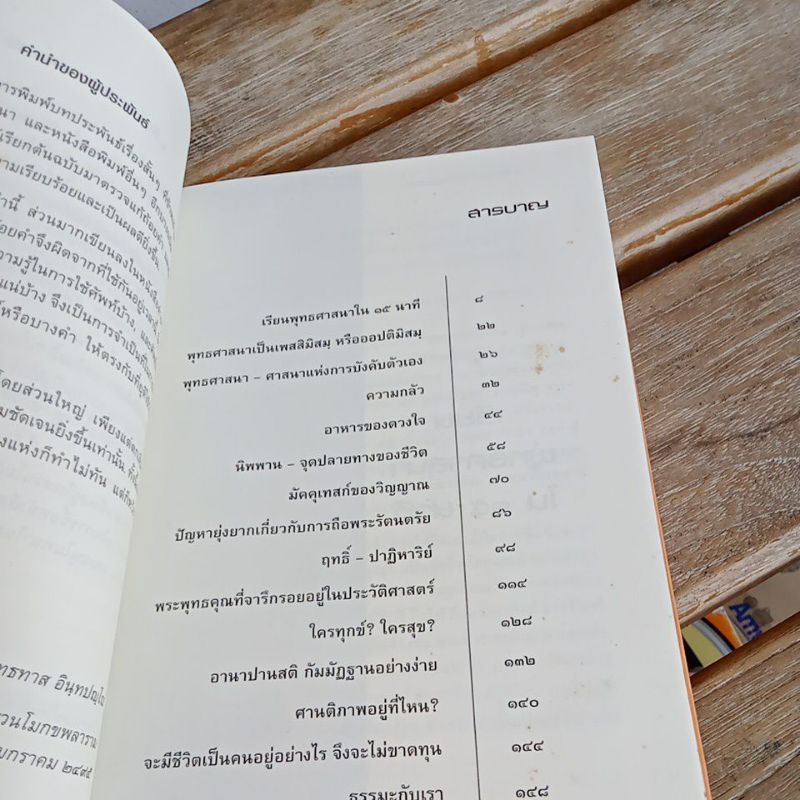 คำนำของผู้ประพันธ์
ารพิมพ์บทประพันธ์เรื่องสั้นๆ
นา และหนังสือพิมพ์อื่นๆ
เรียกต้นฉบับมาตรวจแก้ถ้อยคำ
ามเรียบร้อยและเป็นผลดียิ่งขึ้น
านี้ ส่วนมากเขียนลงในหนังสือ
อยคำจึงผิดจากที่ใช้กันอยู่
วามรู้ในการใช้ศัพท์บ้าง,
แน่บ้าง จึงเป็นการจำเป็นที่
หรือบางคำ ให้ตรงกับ
โดยส่วนใหญ่ เพียงแต่
มชัดเจนยิ่งขึ้นเท่านั้น
งแห่งก็ทำไม่ทัน แต่ก็
ทธทาส อินฺทปญฺโญ
วนโมกขพลาราม
มกราคม ๒๔๙๕
สารบาญ
เรียนพุทธศาสนาใน ๑๕ นาที ๘
พุทธศาสนาเป็นเพสสิมิสมฺ หรือออปติมิสมฺ ๒๒
พุทธศาสนา – ศาสนาแห่งการบังคับตัวเอง ๒๖
ความกลัว ๓๒
อาหารของดวงใจ ๔๔
นิพพาน – จุดปลายทางของชีวิต ๕๘
มัคคุเทสก์ของวิญญาณ ๗๐
ปัญหายุ่งยากเกี่ยวกับการถือพระรัตนตรัย ๘๖
ฤทธิ์ – ปาฏิหาริย์ ๙๘
พระพุทธคุณที่จารึกรอยอยู่ในประวัติศาสตร์ ๑๑๔
ใครทุกข์? ใครสุข? ๑๒๘
อานาปานสติ กัมมัฏฐานอย่างง่าย ๑๓๒
ศานติภาพอยู่ที่ไหน? ๑๔๐
จะมีชีวิตเป็นคนอยู่อย่างไร จึงจะไม่ขาดทุน ๑๔๔
ธรรมะกับเรา ๑๔๘